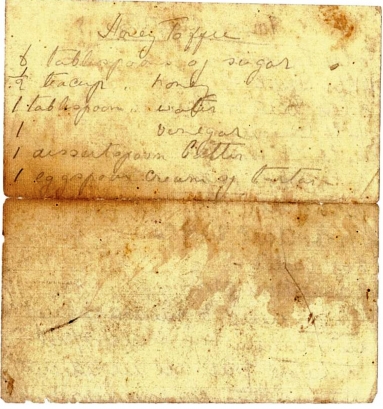 Honey Toffee
6 tablespoons of sugar
1/2 teacup honey
1 tablespoon water
1 vinegar
1 dessertspoon Butter
1 eggspoon cream of tartar